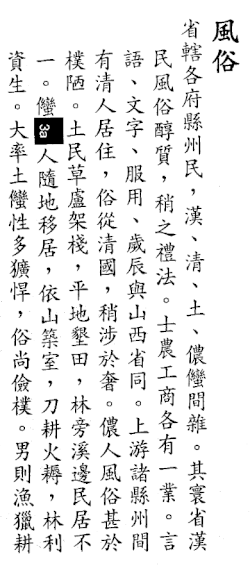 風俗
省轄各府縣州民，漢、清、土、儂蠻間雜。其寰省漢
民風俗醇質，稍之禮法。士農工商各有一業。言
語、文字、服用、歲辰與山西省同。上游諸縣州間
有清人居住，俗從清國，稍涉於奢。儂人風俗甚於
樸陋。土民草盧架棧，平地墾田，林旁溪邊民居不
一。蠻3a人隨地移居，依山築室，刀耕火耨，林利
資生。大率土蠻性多獷悍，俗尚儉樸。男則漁獵耕